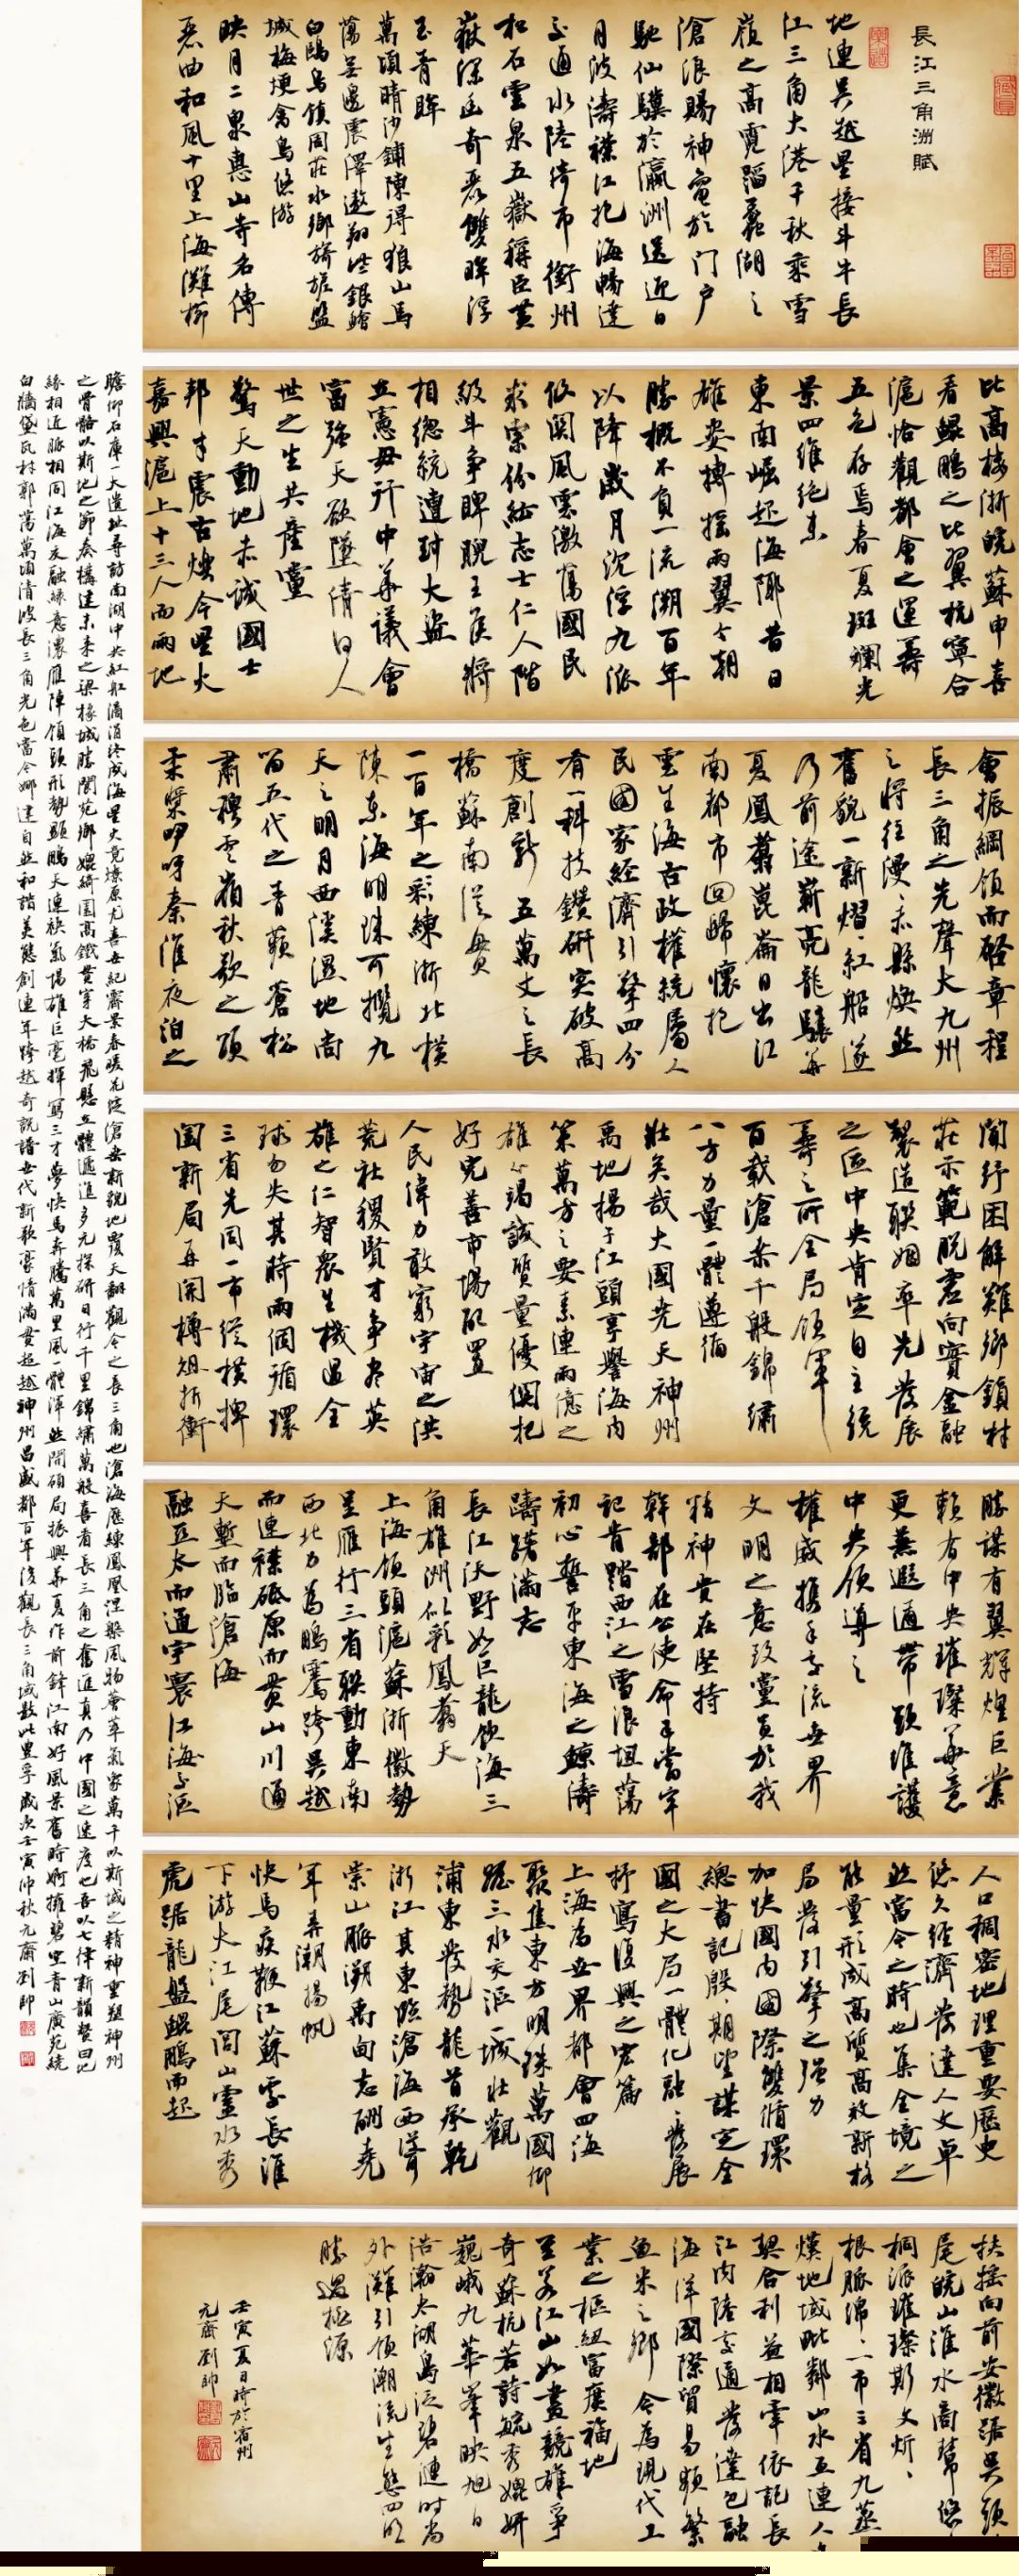 長江三角洲賦
地連吳越星接斗牛長
江三角大港千秋乘雪
嶺之高霓蹈蠡湖之
滄浪賜神電於门户
馳仙驥於瀛洲送迎日
月波濤襟江抱海暢達
交通水陸綺市衢州
松石雲泉五嶽稱臣黃
嶽深邃奇麗雙眸浮
玉青眸
萬頃晴沙鋪陳得狼山馬
蕩無邊震澤遨翔些銀鱠
白鷗烏鎮周莊水鄉旖旎鹽
城梅埂禽鳥悠游
映月二泉惠山寺名傳
惹曲和風十里上海灘櫛
比高樓浙皖蘇申喜
看鯤鵬之比翼杭寧合
滬恰觀都會之運籌
五色存焉春夏斑斕光
景四維絕奇
東南崛起海隅昔日
雄姿搏搖兩翼今朝
勝概不負一流溯百年
以降歲月沉浮九派
攸關風雲激蕩國民
求索份紜志士仁人階
級斗爭睥睨王侯將
相總統連討大盜
立憲毋行中華議會
富強天欲墜倩何人
世之生共產黨
驚天動地赤誠國士
邦才震古爍今星火
嘉興滬上十三人而兩地
會振綱領而啓章程
長三角之先聲大九州
之將往漫漫赤縣煥然
舊貌一新熠熠紅船遂
乃前途嶄亮龍驤華
夏鳳翥崑崙日出江
南都市回歸懷抱
雲生海右政權統屬人
民國家經濟引擎四分
有一科技鑽研突破高
度創新五萬丈之長
橋蘇南從貫
一百年之彩練浙北橫
陳東海明珠可攬九
天之明月西溪濕地尚
留五代之青蘋蒼松
肅穆雲嶺秋歌之頌
柔槳咿呀秦淮夜泊之
聞紓困解難鄉鎮村
莊示範脫虛向實金融
製造聯姻率先發展
之區中央肯定自主統
籌之所全局領軍
百載滄桑千般錦繡
八方力量一體遵循
壯矣哉大國堯天神州
禹地揚子江頭享譽海内
策萬方之要素連兩億之
雄心竭誠質量優調把
好完善市場配置
人民偉力敢窮宇宙之洪
荒社稷賢才爭者英
雄之仁智衆生機遇全
球勿失其時兩個循環
三省先同一市縱橫捭
闔新局再開樽俎折衝
勝謀有翼輝煌巨業
賴有中央璀璨華意
更兼遐邇帶頭維護
中央領導之
權威攜手交流世界
文明之意致靈員於我
精神贵在堅持
幹部在公使命承當牢
記昔踏西江之雪浪坦蕩
初心誓平東海之鯨濤
躊躇滿志
長江沃野如巨龍飲海三
角雄洲似彩鳳翥天
上海領頭滬蘇浙徽勢
呈雁行三省聯動東南
西北力爲鵬騫跨吳越
而連襟砥原而貫山川通
天塹而臨滄海
融亞太而通宇寰江海交滙
人口稠密地理重要歷史
悠久經濟發達人文卓
然當今之時也集全境之
能量形成高質高效新格
局發引擎之強力
加快國内國際雙循環
總書記殷殷期望謀定全
國之大局一體化融發展
抒寫復興之宏篇
上海爲世界都會四海
聚焦東方明珠萬國仰
踞三水交滙一城壯觀
浦東發勢龍首承乾
浙江其東臨滄海西聳
崇山脈溯禹甸志酬堯
年弄潮揚帆
快馬疾鞭江蘇雲長淮
下游大江尾閭山靈水秀
虎踞龍盤鯤鵬而起
扶搖向前安徽踞吳頭
尾皖山淮水商幫悠
桐派璀璨斯文炘炘
根脈綿綿一市三省九蒸
熯地域毗鄰山水互連人文
契合利益相牽依託長
江内陸交通發達包融
海洋國際貿易頻繁
魚米之鄉今爲現代工
業之樞紐富庶福地
至若江山如畫競雄爭
奇蘇杭若詩毓秀媲妍
巍峨九華峯映旭日
浩瀚太湖島泛碧漣時尚
外灘引領潮流生態四明
勝過桃源
壬寅夏日時於宿州
元齋劉帥
瞻仰石庫一大遺址尋訪南湖中共紅船滴涓終成海星火竟燎原尤喜世紀霽景春暖花綻滄桑新貌地覆天翻觀今之長三角也滄海歷練鳳凰涅槃風物薈萃氣象萬千以斯城之精神重塑神州
之骨骼以斯地之節奏構建未来之梁椽城勝閬苑鄉媲綺園高鐵貫穿大橋飛懸立體邐進多元探研日行千里錦繡萬般喜看長三角之奮進真乃中國之速度也吾以七律新韻贊曰地
緣相近脈相同江海交融綠意濃雁陣領頭形勢顯鵬天連袂氣場雄巨毫揮寫三才夢快馬奔騰萬里風一體渾然開碩局振興華夏作前鋒江南好風景舊時婀擁碧空青山廣苑繞
白牆黛瓦村郭蕩萬頃清波長三角光色當今娜建自然和諧美態創連年跨越奇觀譜世代新歌豪情滿貫超越神州昌盛都百年後觀長三角域數此豐孚歲次壬寅仲秋元齋劉帥